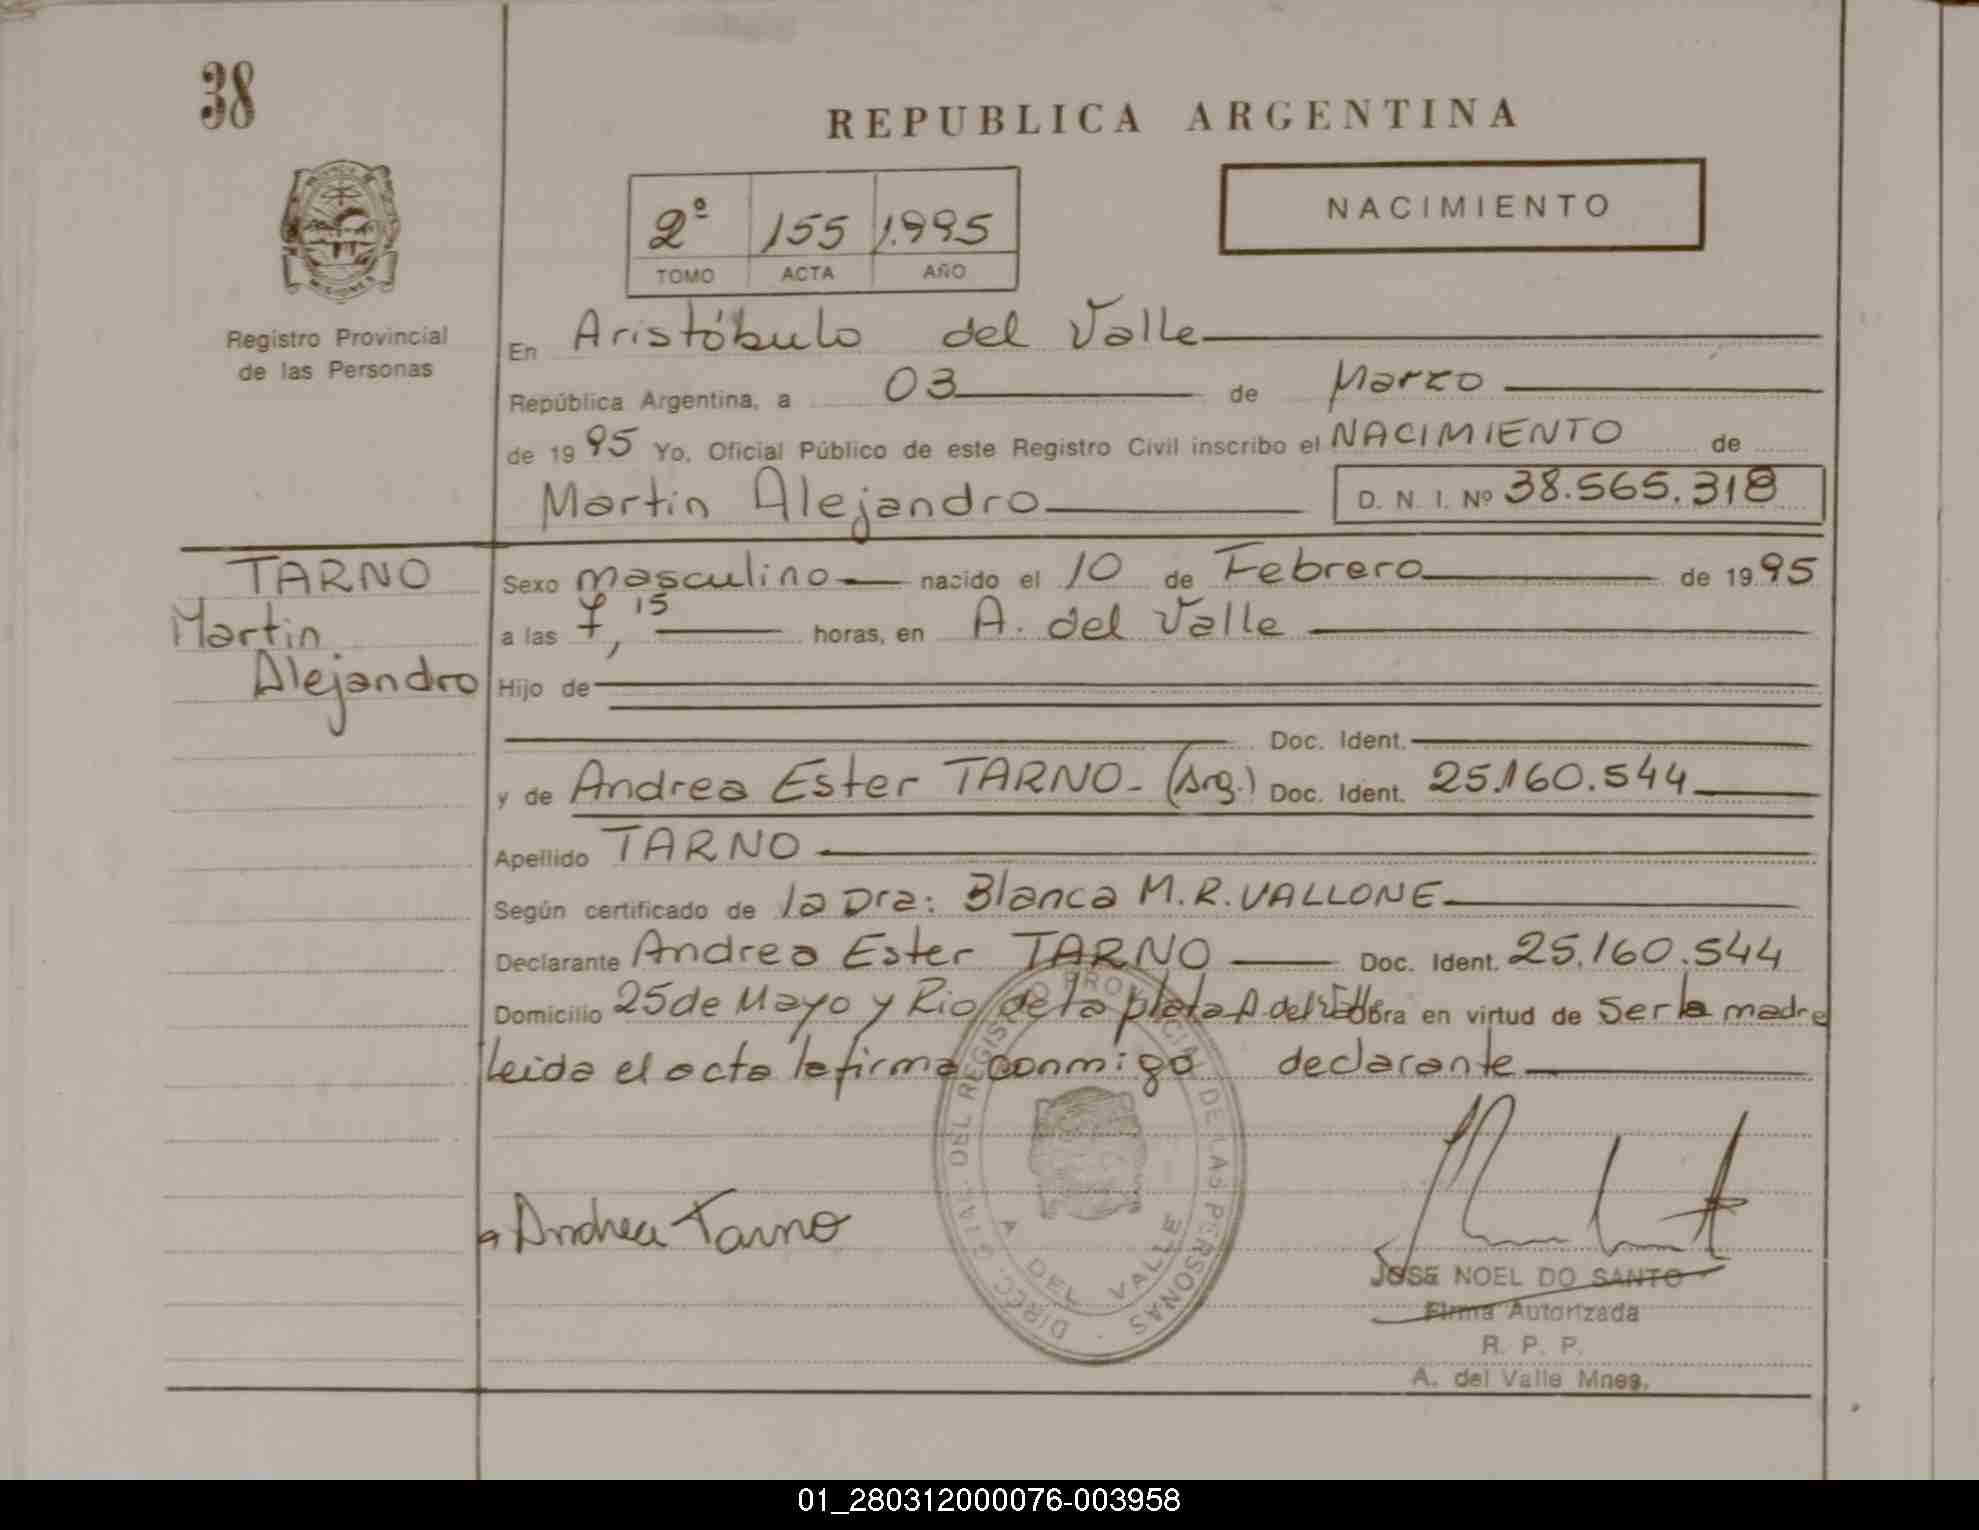 38
REPUBLICA ARGENTINA
NACIMIENTO
2º 155 1.995
TOMO ACTA AÑO
MISIONES
Registro Provincial
de las Personas
En Aristóbulo del Valle
República Argentina, a 03 de Marzo
de 1995 Yo, Oficial Público de este Registro Civil inscribo el NACIMIENTO de
Martin Alejandro D. N. I. Nº 38.565.318
TARNO
Martin
Alejandro
Sexo masculino nacido el 10 de Febrero de 1995
a las 7, 15 horas, en A. del Valle
Hijo de
Doc. Ident.
y de Andrea Ester TARNO - (Arg.) Doc. Ident. 25.160.544
Apellido TARNO
Según certificado de la Dra: Blanca M. R. VALLONE
Declarante Andrea Ester TARNO Doc. Ident. 25.160.544
Domicilio 25 de Mayo y Rio de la plata A. del Valle Obra en virtud de ser la madre
leida el acta la firma conmigo declarante
DIREC. GRAL. DEL REGISTRO PROVINCIAL DE LAS PERSONAS
A DEL VALLE
Andrea Tarno
JOSE NOEL DO SANTO
Firma Autorizada
R. P. P.
A. del Valle Mnes.
01_280312000076-003958